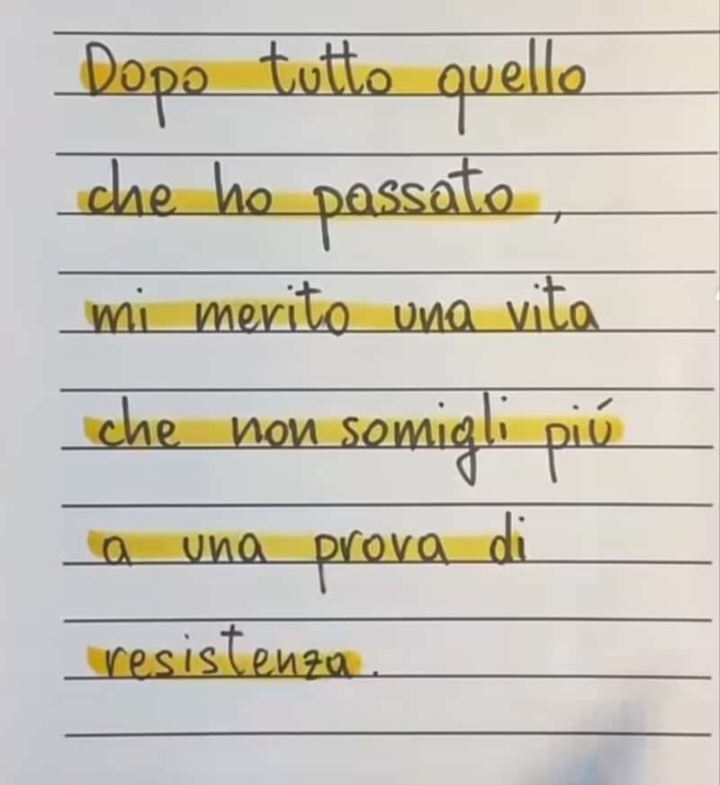 Dopo tutto quello
che ho passato,
mi merito una vita
che non somigli piú
a una prova di
resistenza.